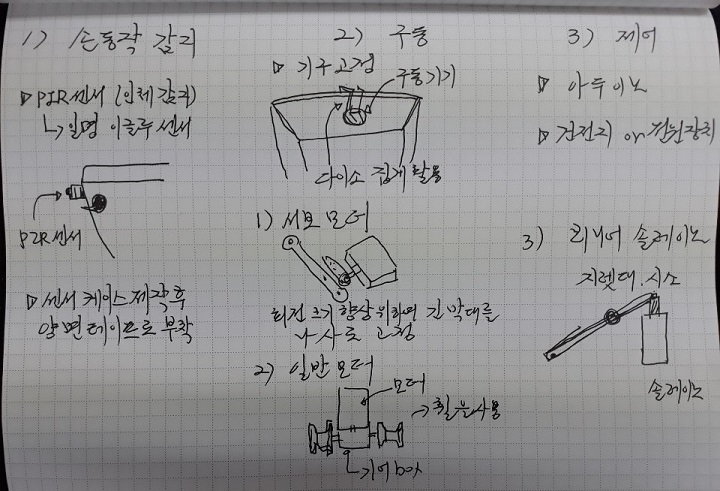 1) 손동작 감지
▷ PIR센서 (인체감지)
↳ 일명 이글루 센서
PIR센서
▷ 센서 케이스 제작 후
양면테이프로 부착
2) 구동
▷ 기구고정
구동기기
다이소 집게 활용
1) 서보 모터
회전 크기 향상 위하여 긴 막대를
나사로 고정
2) 일반 모터
모터
→ 휠을 사용
기어box
3) 제어
▷ 아두이노
▷ 건전지 or 전원장치
3) 리니어 솔레노이드
지렛대. 시소